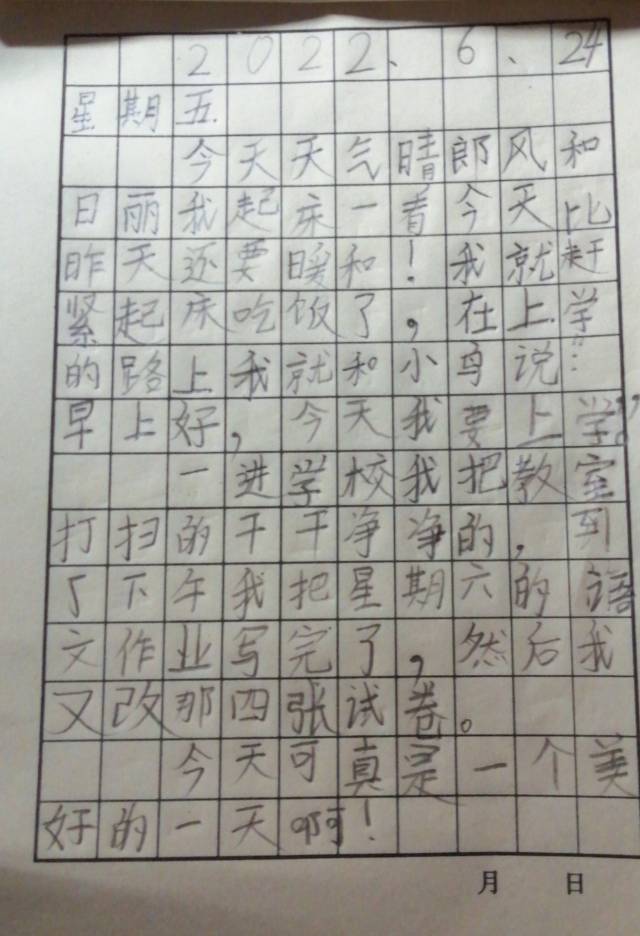 2022、6、24
星期五
今天天气晴郎风和
日丽我起床一看今天比
昨天还要暖和！我就赶
紧起床吃饭了，在上学
的路上我就和小鸟说：“
早上好，今天我要上学。”
一进学校我把教室
打扫的干干净净的，到
了下午我把星期六的语
文作业写完了，然后我
又改那四张试卷。
今天可真是一个美
好的一天啊！
月 日